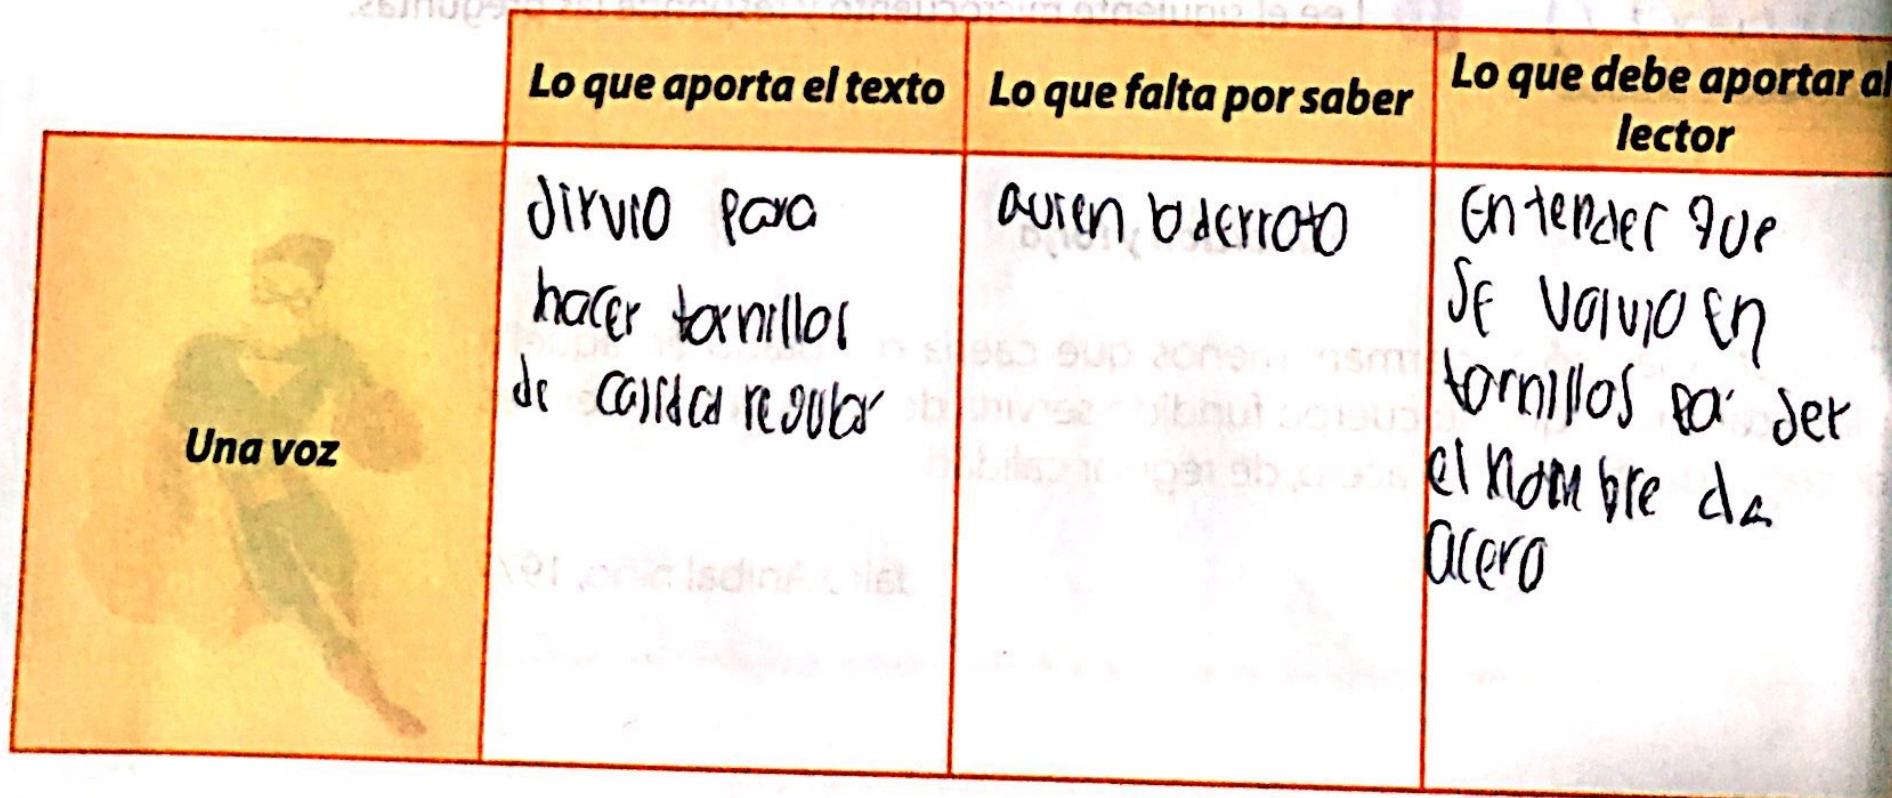 Lo que aporta el texto
Lo que falta por saber
Lo que debe aportar al
lector
Una voz
sirvio para
hacer tornillos
de calidad regular
quien lo derroto
Entender que
se volvio en
tornillos por ser
el hombre de
acero